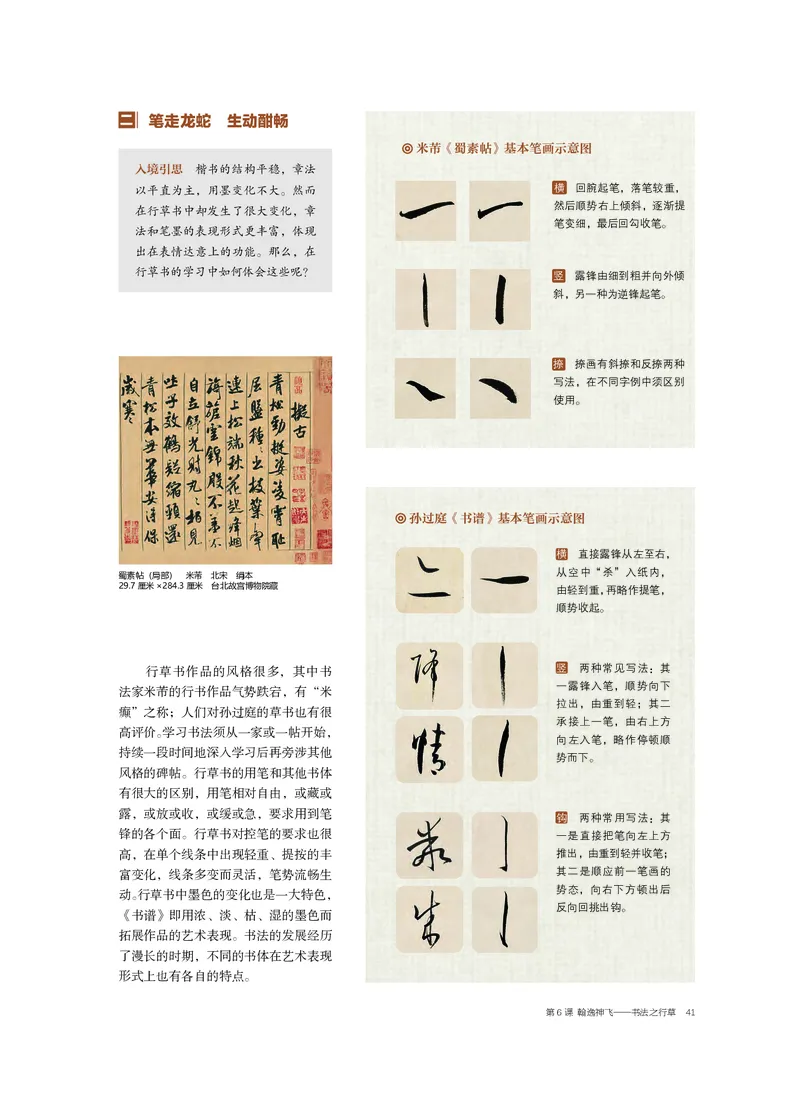 二 笔走龙蛇 生动酣畅
入境引思 楷书的结构平稳，章法
以平直为主，用墨变化不大。然而
在行草书中却发生了很大变化，章
法和笔墨的表现形式更丰富，体现
出在表情达意上的功能。那么，在
行草书的学习中如何体会这些呢？
擬古
青松勁挺姿凌霄恥
屈盤種〻出枝葉牽
連上松端秋花起絳烟
旖旎雲錦殷不羞不
自立舒光射丸〻柏見
吐子效鶴疑縮頸還
青松本無華安得保
歲寒〻
蜀素帖（局部） 米芾 北宋 绢本
29.7 厘米 ×284.3 厘米 台北故宫博物院藏
行草书作品的风格很多，其中书
法家米芾的行书作品气势跌宕，有“米
癫”之称；人们对孙过庭的草书也有很
高评价。学习书法须从一家或一帖开始，
持续一段时间地深入学习后再旁涉其他
风格的碑帖。行草书的用笔和其他书体
有很大的区别，用笔相对自由，或藏或
露，或放或收，或缓或急，要求用到笔
锋的各个面。行草书对控笔的要求也很
高，在单个线条中出现轻重、提按的丰
富变化，线条多变而灵活，笔势流畅生
动。行草书中墨色的变化也是一大特色，
《书谱》即用浓、淡、枯、湿的墨色而
拓展作品的艺术表现。书法的发展经历
了漫长的时期，不同的书体在艺术表现
形式上也有各自的特点。
米芾《蜀素帖》基本笔画示意图
横 回腕起笔，落笔较重，
然后顺势右上倾斜，逐渐提
笔变细，最后回勾收笔。
竖 露锋由细到粗并向外倾
斜，另一种为逆锋起笔。
捺 捺画有斜捺和反捺两种
写法，在不同字例中须区别
使用。
孙过庭《书谱》基本笔画示意图
横 直接露锋从左至右，
从空中“杀”入纸内，
由轻到重，再略作提笔，
顺势收起。
降
情
竖 两种常见写法：其
一露锋入笔，顺势向下
拉出，由重到轻；其二
承接上一笔，由右上方
向左入笔，略作停顿顺
势而下。
钩 两种常用写法：其
一是直接把笔向左上方
推出，由重到轻并收笔；
其二是顺应前一笔画的
势态，向右下方顿出后
反向回挑出钩。
第 6 课 翰逸神飞——书法之行草 41